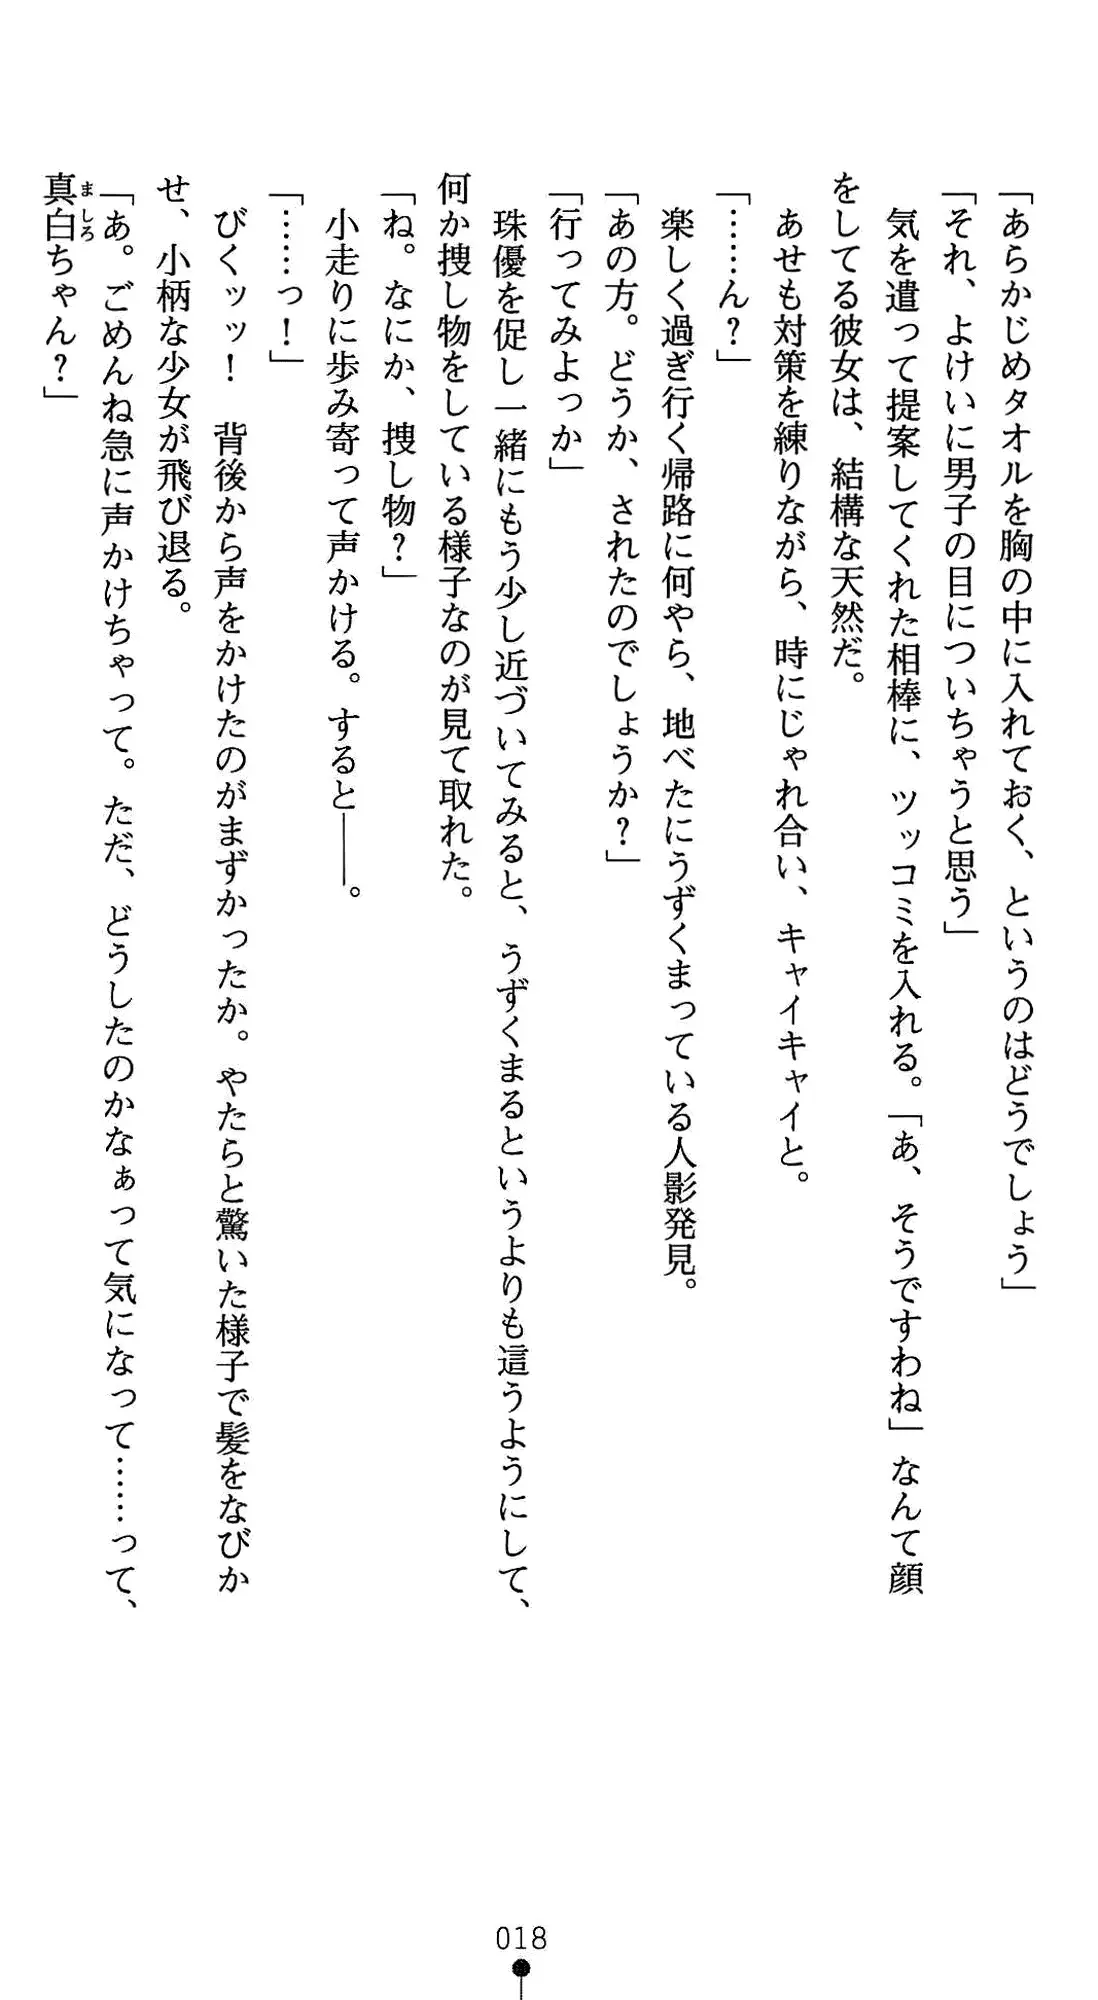 「あらかじめタオルを胸の中に入れておく、というのはどうでしょう」
「それ、よけいに男子の目についちゃうと思う」
　気を遣って提案してくれた相棒に、ツッコミを入れる。「あ、そうですわね」なんて顔
をしてる彼女は、結構な天然だ。
　あせも対策を練りながら、時にじゃれ合い、キャイキャイと。
「……ん？」
　楽しく過ぎ行く帰路に何やら、地べたにうずくまっている人影発見。
「あの方。どうか、されたのでしょうか？」
「行ってみよっか」
　珠優を促し一緒にもう少し近づいてみると、うずくまるというよりも這うようにして、
何か捜し物をしている様子なのが見て取れた。
「ね。なにか、捜し物？」
　小走りに歩み寄って声かける。すると――。
「……っ！」
　びくッッ！　背後から声をかけたのがまずかったか。やたらと驚いた様子で髪をなびか
せ、小柄な少女が飛び退る。
「あ。ごめんね急に声かけちゃって。ただ、どうしたのかなぁって気になって……って、
真白ちゃん？」
ましろ
018